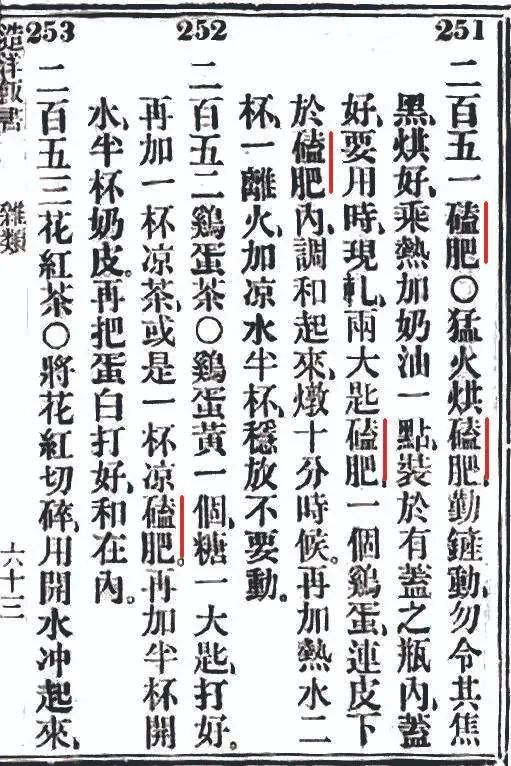 251
二百五一磕肥〇猛火烘磕肥、勤鏟動、勿令其焦
黑、烘好、乘熱加奶油一點、裝於有蓋之瓶內、蓋
好、要用時、現軋、兩大匙磕肥一個鷄蛋、連皮下
於磕肥內、調和起來、燉十分時候。再加熱水二
杯、一離火、加凉水半杯、穩放不要動。
252
二百五二鷄蛋茶〇鷄蛋黃一個、糖一大匙、打好。
再加一杯凉茶、或是一杯凉磕肥。再加半杯開
水、半杯奶皮。再把蛋白打好、和在內。
253
二百五三花紅茶〇將花紅切碎、用開水冲起來、
造洋飯書
雜類
六十三